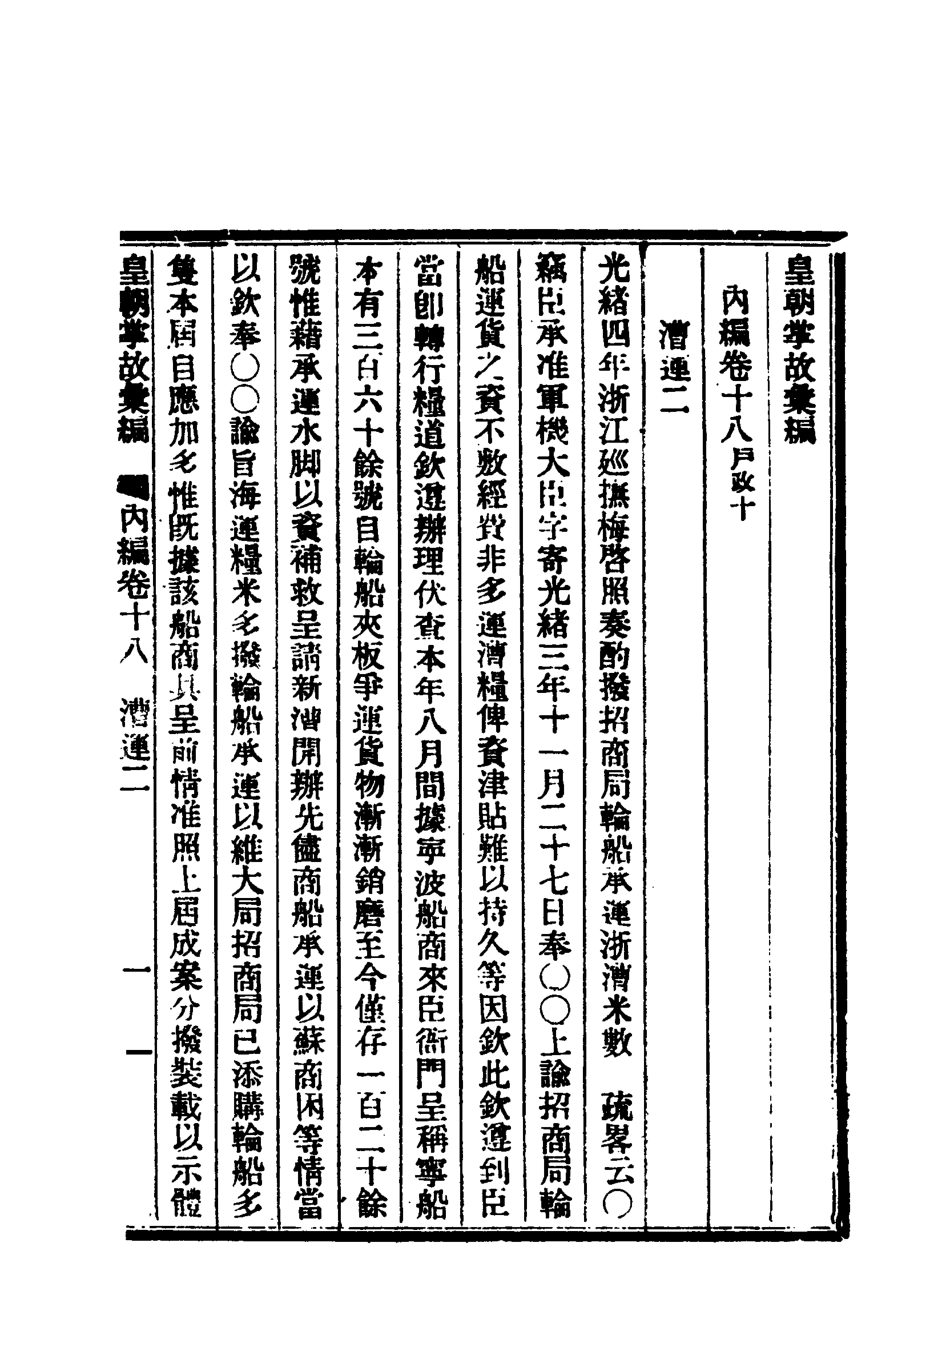 皇朝掌故彙編
內編卷十八戶政十
漕運二
光緒四年浙江廵撫梅啓照奏酌撥招商局輪船承運浙漕米數　疏畧云〇
竊臣承准軍機大臣字寄光緒三年十一月二十七日奉〇〇上諭招商局輪
船運貨之資不敷經費非多運漕糧俾資津貼難以持久等因欽此欽遵到臣
當卽轉行糧道欽遵辦理伏查本年八月間據寧波船商來臣衙門呈稱寧船
本有三百六十餘號自輪船夾板爭運貨物漸漸銷磨至今僅存一百二十餘
號惟藉承運水脚以資補救呈請新漕開辦先儘商船承運以蘇商困等情當
以欽奉〇〇諭旨海運糧米多撥輪船承運以維大局招商局已添購輪船多
隻本屆自應加多惟旣據該船商具呈前情准照上屆成案分撥裝載以示體
皇朝掌故彙編　內編卷十八　漕運二　一　一